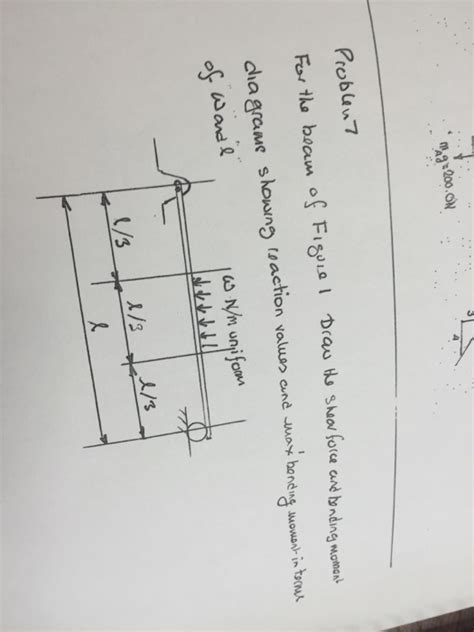 mAd g = 200.0N
3
4
Problem 7
For the beam of Figure 1 Draw the shear force and bending moment
diagrams showing reaction values and max bending moment in terms
of w and l
w N/m uniform
l/3 l/3 l/3
l